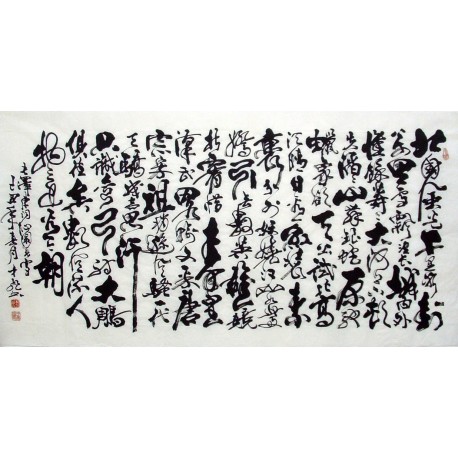 北国风光千里冰封
万里雪飘望长城内外
惟余莽莽大河上下
顿失滔滔山舞银蛇原驰
蜡象欲与天公试比高
须晴日看红装素
裹分外妖娆江山如此多
娇引无数英雄竞
折腰惜秦皇
汉武略输文采唐
宗宋祖稍逊风骚一代
天骄成吉思汗
只識弯弓射大鵰
俱往矣数风流人
物还看今朝
毛泽东词沁园春雪